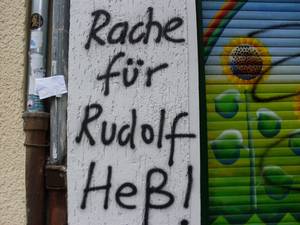 Rache
für
Rudolf
Heß!